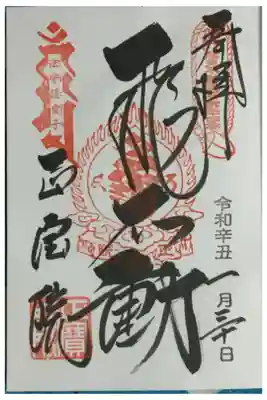 奉拝
令和辛丑一月三十日
飛不動
正宝院